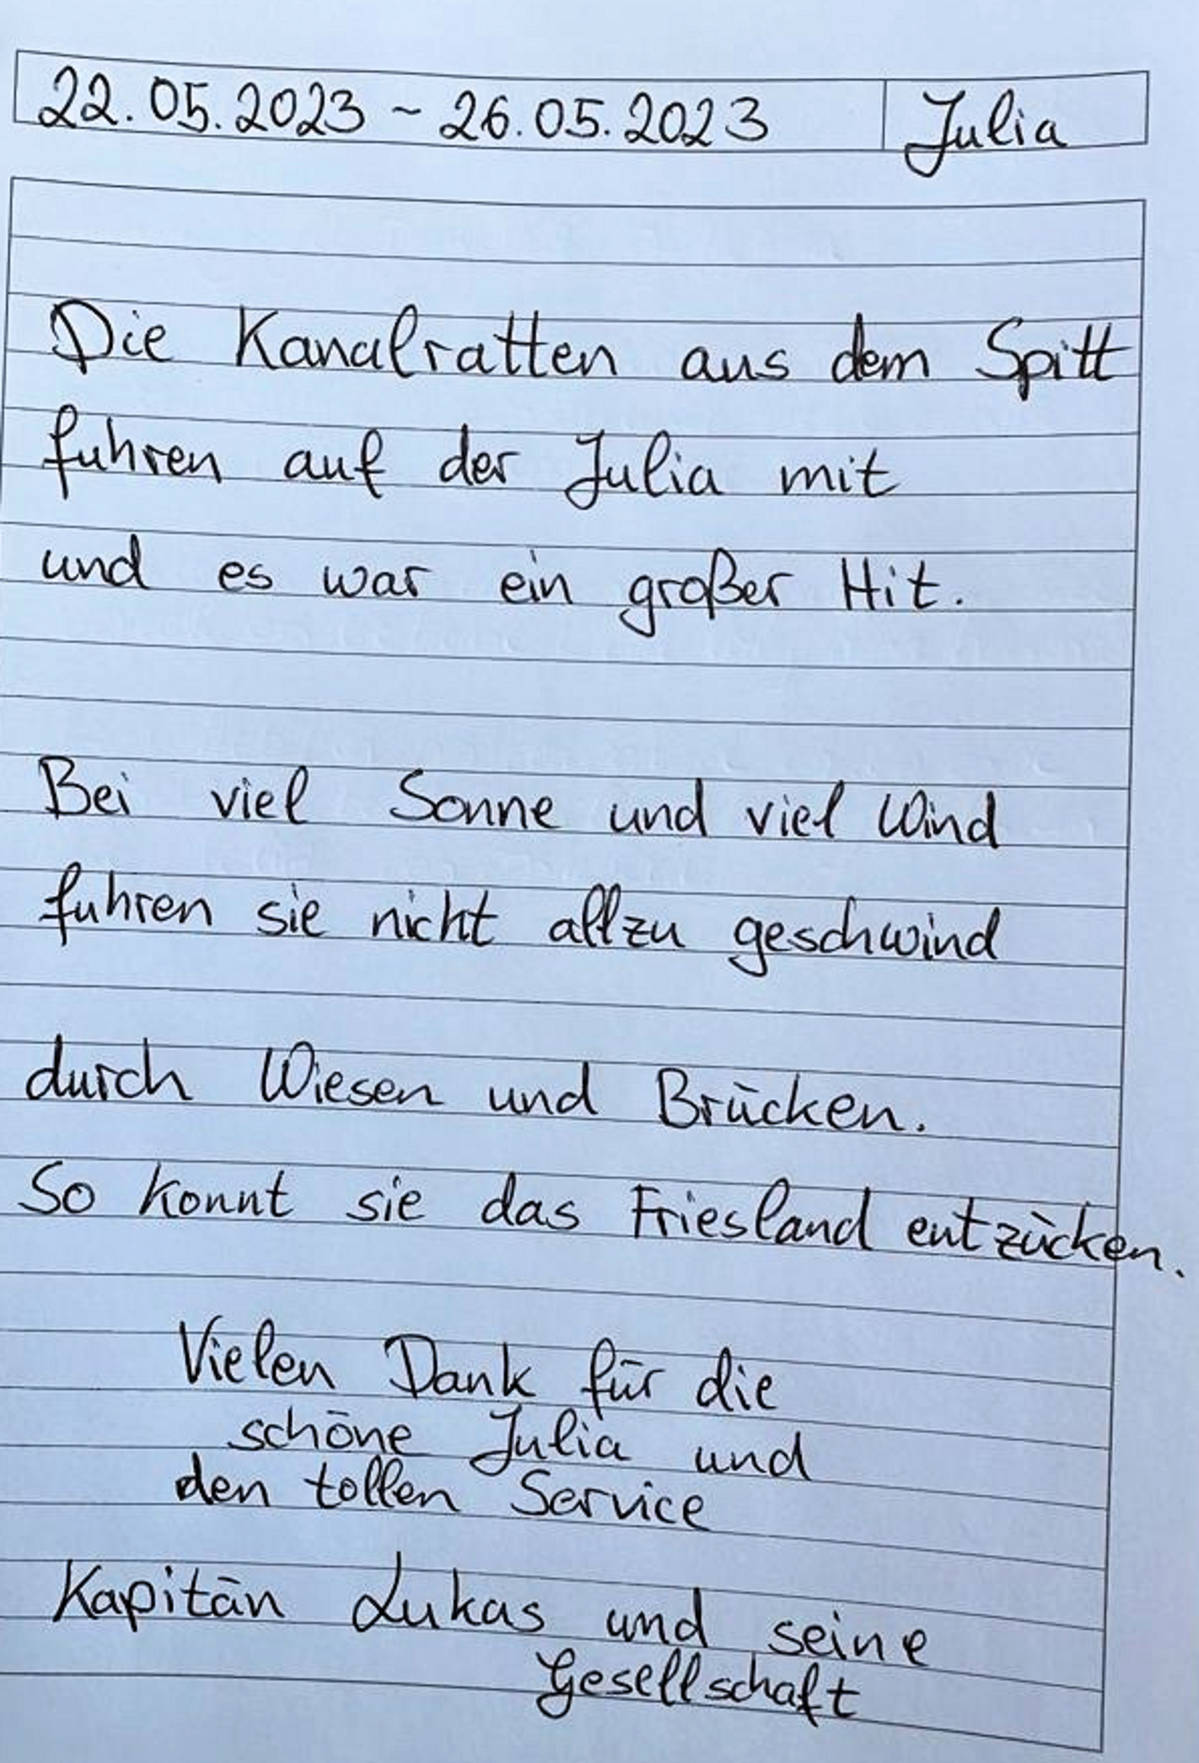 22.05.2023 ~ 26.05.2023 Julia
Die Kanalratten aus dem Spitt
fuhren auf der Julia mit
und es war ein großer Hit.
Bei viel Sonne und viel Wind
fuhren sie nicht allzu geschwind
durch Wiesen und Brücken.
So konnt sie das Friesland entzücken.
Vielen Dank für die
schöne Julia und
den tollen Service
Kapitän Lukas und seine
Gesellschaft